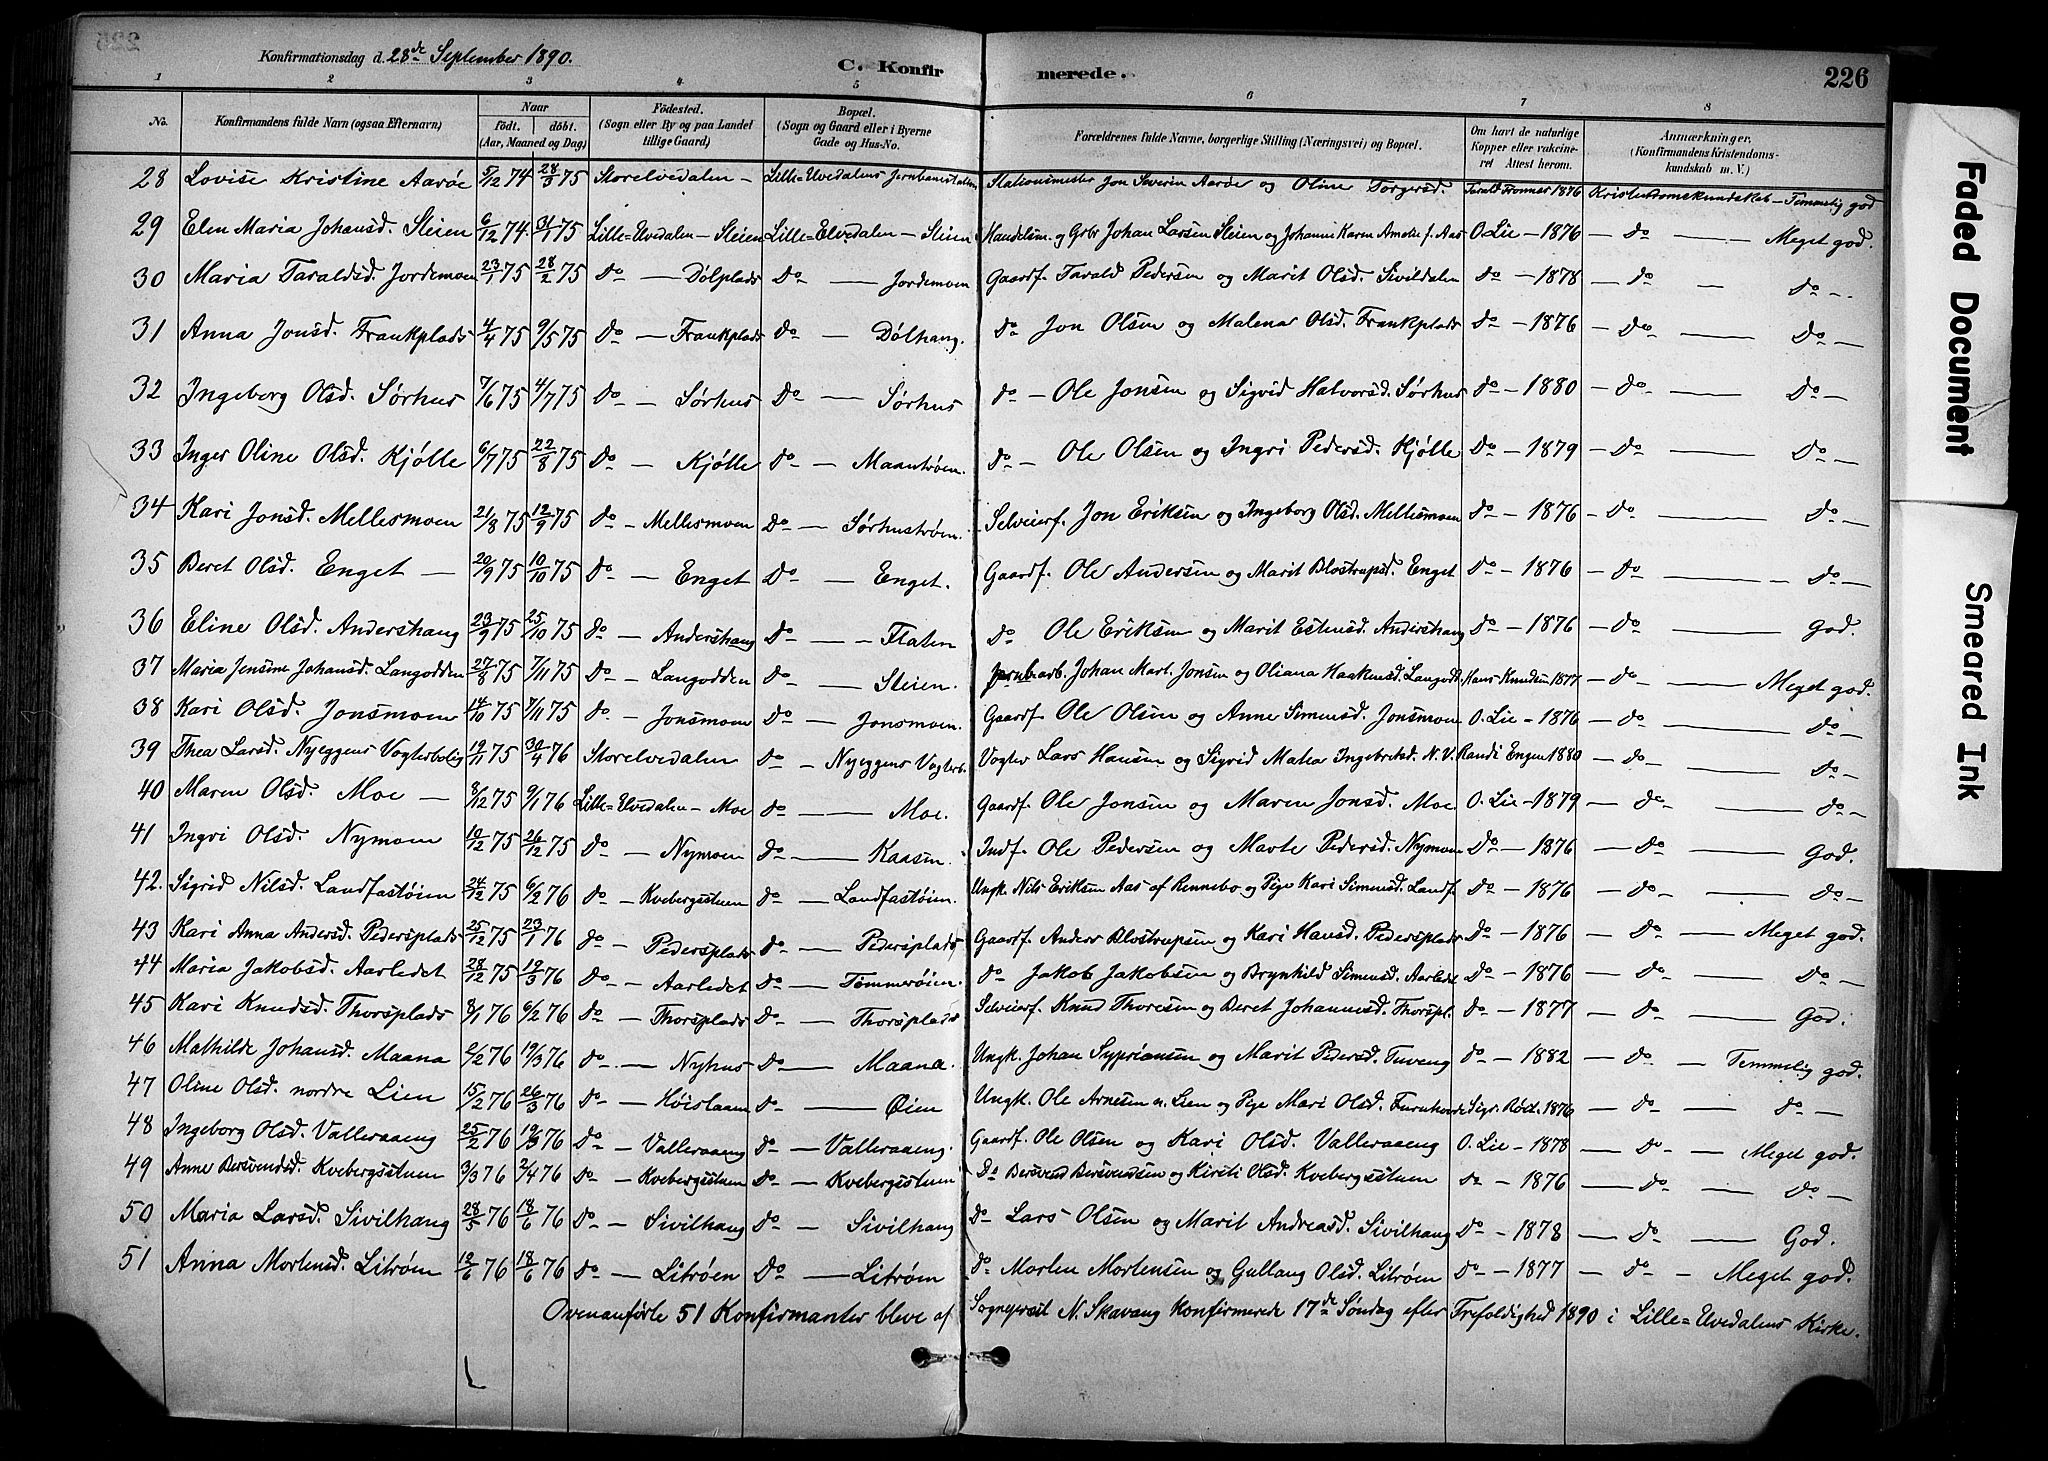 Konfirmationsdag d. 28de September 1890.
C. Konfirmerede.
226
1 2 3 4 5 6 7 8
No. | Konfirmandens fulde Navn (ogsaa Efternavn) | Naar födt. döbt. (Aar, Maaned og Dag) | Födested. (Sogn eller By og paa Landet tillige Gaard) | Bopæl. (Sogn og Gaard eller i Byerne Gade og Hus-No. | Forældrenes fulde Navne, borgerlige Stilling (Næringsvei) og Bopæl. | Om havt de naturlige Kopper eller vakcineret Attest herom. | Anmærkninger, (Konfirmandens Kristendomskundskab m. V.)
28 Lovise Kristine Aarøe 5/12 74 28/3 75 Storelvedalen – Lille-Elvedalens Jernbanestation Stationsmester Jon Severin Aarøe og Oline Torgersd. Tarald Fronnes 1876 Kristendomskundskab – Temmelig god
29 Elen Maria Johansd. Steien 6/12 74. 31/1 75 Lille-Elvedalen – Steien Lille-Elvedalen – Steien Handelsm. og Grbr Johan Larsen Steien og Johanne Karen Amalie f. Aas O. Lie – 1876 – do – Meget god.
30 Maria Taraldsd. Jordemoen 23/1 75 28/2 75 do – Dølplads do – Jordemoen Gaardf. Tarald Pedersen og Marit Olsd. Sivildalen do – 1878 – do – do –
31 Anna Jonsd. Frankplads 4/4 75 9/5 75 do – Frankplads do – Dølhaug. do Jon Olsen og Malena Olsd. Frankplads do – 1876 – do – do –
32 Ingeborg Olsd. Sørhus 7/6 75 4/7 75 do – Sørhus do – Sørhus do – Ole Jonsen og Sigrid Halvorsd. Sørhus do – 1880 – do – do –
33 Inger Oline Olsd. Kjølle 6/7 75 22/8 75 do – Kjølle do – Maantrøen. do – Ole Olsen og Ingri Pedersd. Kjølle do – 1879 – do – do –
34 Kari Jonsd. Mellesmoen 21/8 75 12/9 75 do – Mellesmoen do – Sørhustrøen. Selveierf. Jon Eriksen og Ingeborg Olsd. Mellesmoen do – 1876 – do – do –
35 Beret Olsd. Enget – 20/9 75 10/10 75 do – Enget do – Enget. Gaardf. Ole Andersen og Marit Blostrupsd. Enget do – 1876 – do – do –
36 Eline Olsd. Andershaug 23/9 75 25/10 75 do – Andershaug do – Flaten do Ole Eriksen og Marit Estensd. Andershaug do – 1876 – do – God.
37 Maria Jensine Johansd. Langodden 27/8 75 7/11 75 do – Langodden do – Steien. Jernb.arb. Johan Mart. Jonsen og Oliana Haakensd. Langodd. Hans Knudsen 1877 – do – Meget god.
38 Kari Olsd. Jonsmoen 14/10 75 7/11 75 do – Jonsmoen do – Jonsmoen. Gaardf. Ole Olsen og Anne Simensd. Jonsmoen O. Lie – 1876 – do – do –
39 Thea Larsd. Nyeggens Vogterbolig 19/11 75 30/4 76 Storelvedalen do – Nyeggens Vogterb. Vogter Lars Hansen og Sigrid Matea Ingebretsd. N. V. Randi Engen 1880 – do – do –
40 Maren Olsd. Moe – 8/12 75 9/1 76 Lille-Elvedalen – Moe do – Moe. Gaardf. Ole Jonsen og Maren Jonsd. Moe O. Lie – 1879 – do – do –
41 Ingri Olsd. Nymoen 10/12 75 26/12 75 do – Nymoen do – Kaasen. Indf. Ole Pedersen og Marte Pedersd. Nymoen do – 1876 – do – God.
42. Sigrid Nilsd. Landfastøien 24/12 75 6/2 76 do – Kvebergsstuen do – Landfastøien. Ungk. Nils Eriksen Aas af Rennebo og Pige Kari Simensd. Landf. do – 1876 – do – do –
43 Kari Anna Andersd. Pedersplads 25/12 75 23/1 76 do – Pedersplads do – Pedersplads Gaardf. Anders Blostrupsen og Kari Hansd. Pedersplads do – 1876 – do – Meget god.
44 Maria Jakobsd. Aarledet 28/12 75 19/3 76 do – Aarledet do – Tømmerøien. do Jakob Jakobsen og Brynhild Simensd. Aarledet do – 1876 – do – do –
45 Kari Knudsd. Thorsplads 8/1 76 6/2 76 do – Thorsplads do – Thorsplads Selveierf. Knud Thoresen og Beret Johannesd. Thorspl. do – 1877 – do – God.
46 Mathilde Johansd. Maana 2/2 76 19/3 76 do – Nyhus do – Maana. Ungk. Johan Syprianssen og Marit Pedersd. Tuveng do – 1882 – do – Temmelig god.
47 Oline Olsd. nordre Lien 15/2 76 26/3 76 do – Høistaaen do – Øien Ungk. Ole Arnesen n. Lien og Pige Mari Olsd. Furuhovde Sigr. Røst. 1876 – do – do –
48 Ingeborg Olsd. Valleraaeng 25/2 76 19/3 76 do – Valleraaeng do – Valleraaeng. Gaardf. Ole Olsen og Kari Olsd. Valleraaeng O. Lie – 1878 – do – Meget god.
49 Anne Bersvendsd. Kvebergsstuen 3/3 76 2/4 76 do – Kvebergsstuen do – Kvebergsstuen do Bersvend Bersvendsen og Kirsti Olsd. Kvebergsstuen do – 1876 – do – do –
50 Maria Larsd. Sivilhaug 28/5 76 18/6 76 do – Sivilhaug do – Sivilhaug do – Lars Olsen og Marit Andreasd. Sivilhaug do – 1878 – do – God.
51 Anna Mortensd. Litrøen 12/6 76 18/6 76 do – Litrøen do – Litrøen do Morten Mortensen og Gullaug Olsd. Litrøen do – 1877 – do – Meget god.
Ovenanførte 51 Konfirmanter bleve af Sogneprest N. Skavang konfirmerede 17de Søndag efter Trefoldighed 1890 i Lille-Elvedalens Kirke.
Faded Document
Smeared Ink